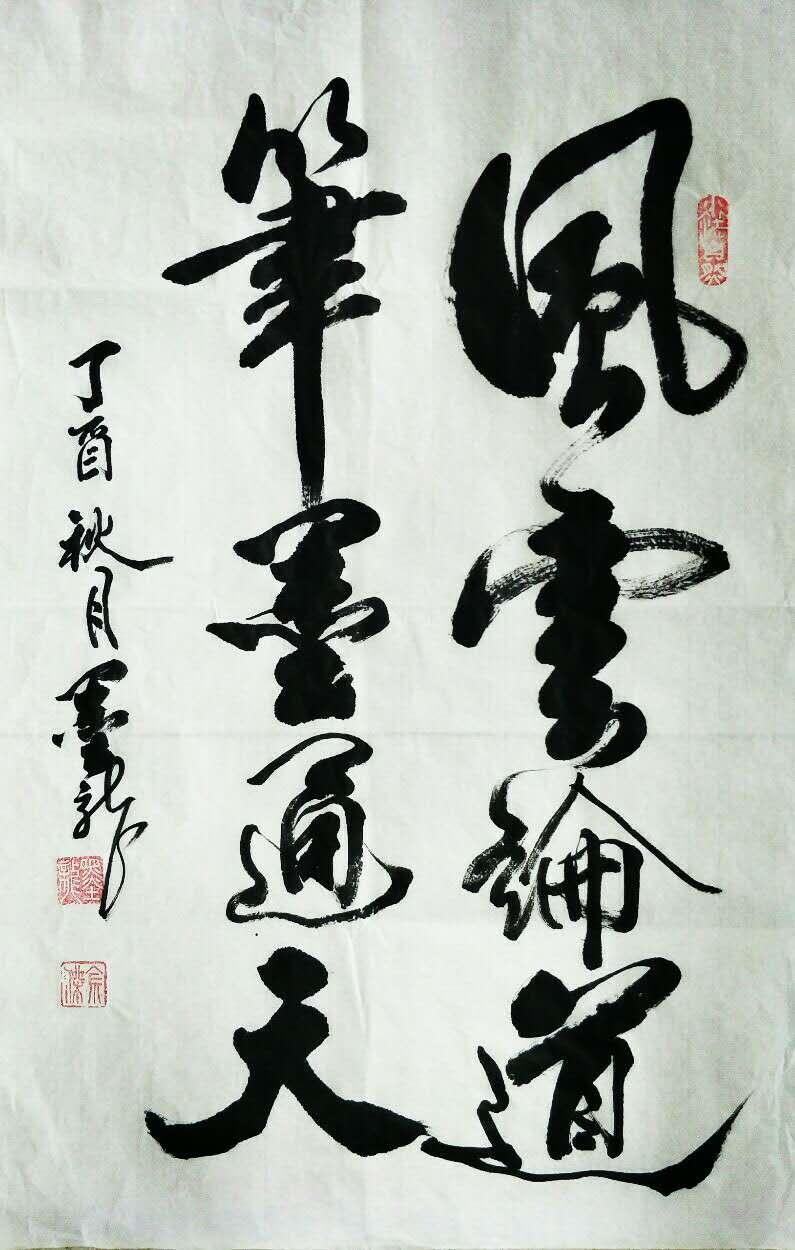 風雲論道
筆墨通天
丁酉秋月墨龍